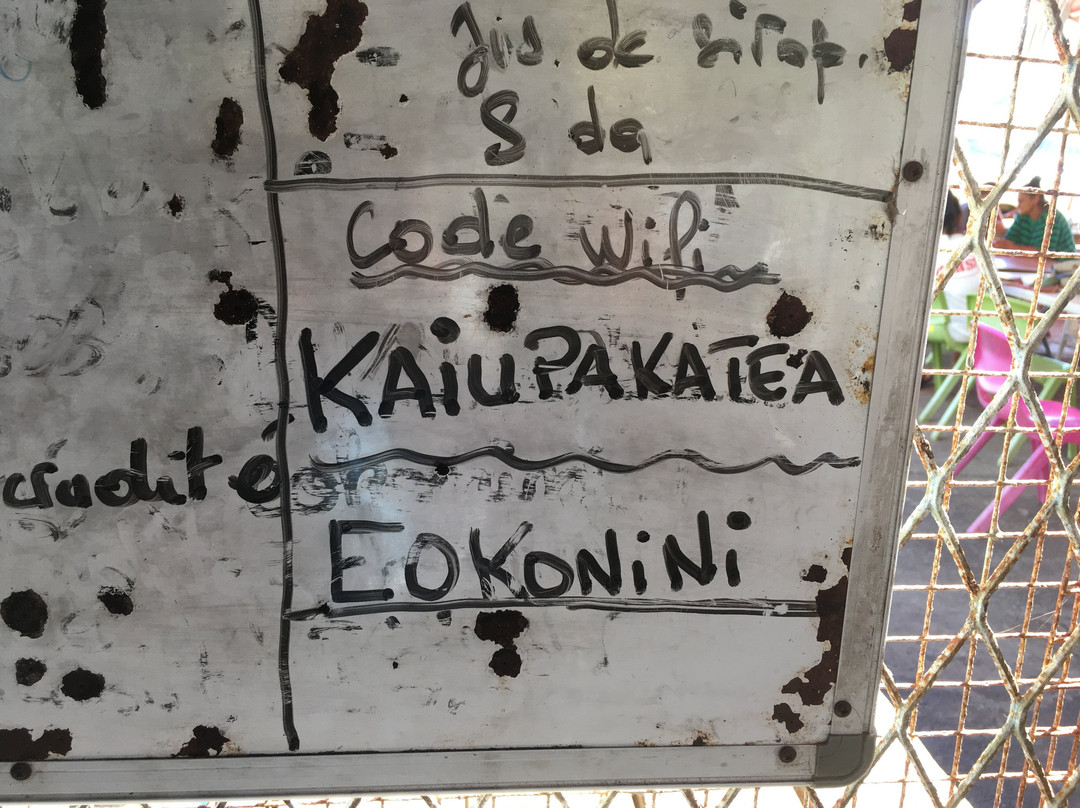 - Jus. de sirop.
S da
Code wifi
KAiUPAKATEA
cruditée
EOKONiNi